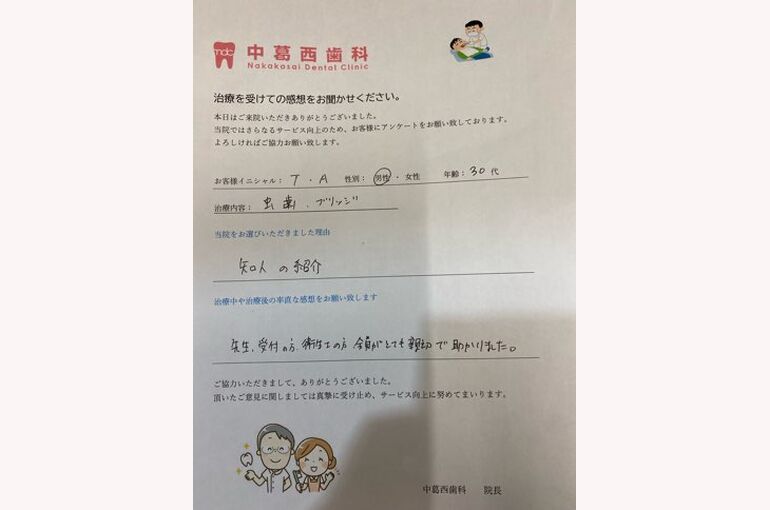 mdc 中葛西歯科
Nakakasai Dental Clinic
治療を受けての感想をお聞かせください。
本日はご来院いただきありがとうございました。
当院ではさらなるサービス向上のため、お客様にアンケートをお願い致しております。
よろしければご協力お願い致します。
お客様イニシャル： T ・ A 性別： 男性 ・ 女性 年齢：30 代
治療内容： 虫歯、ブリッジ
当院をお選びいただきました理由
知人の紹介
治療中や治療後の率直な感想をお願い致します
先生、受付の方、衛生士の方 全員がとても親切で助かりました。
ご協力いただきまして、ありがとうございました。
頂いたご意見に関しましては真摯に受け止め、サービス向上に努めてまいります。
中葛西歯科 院長